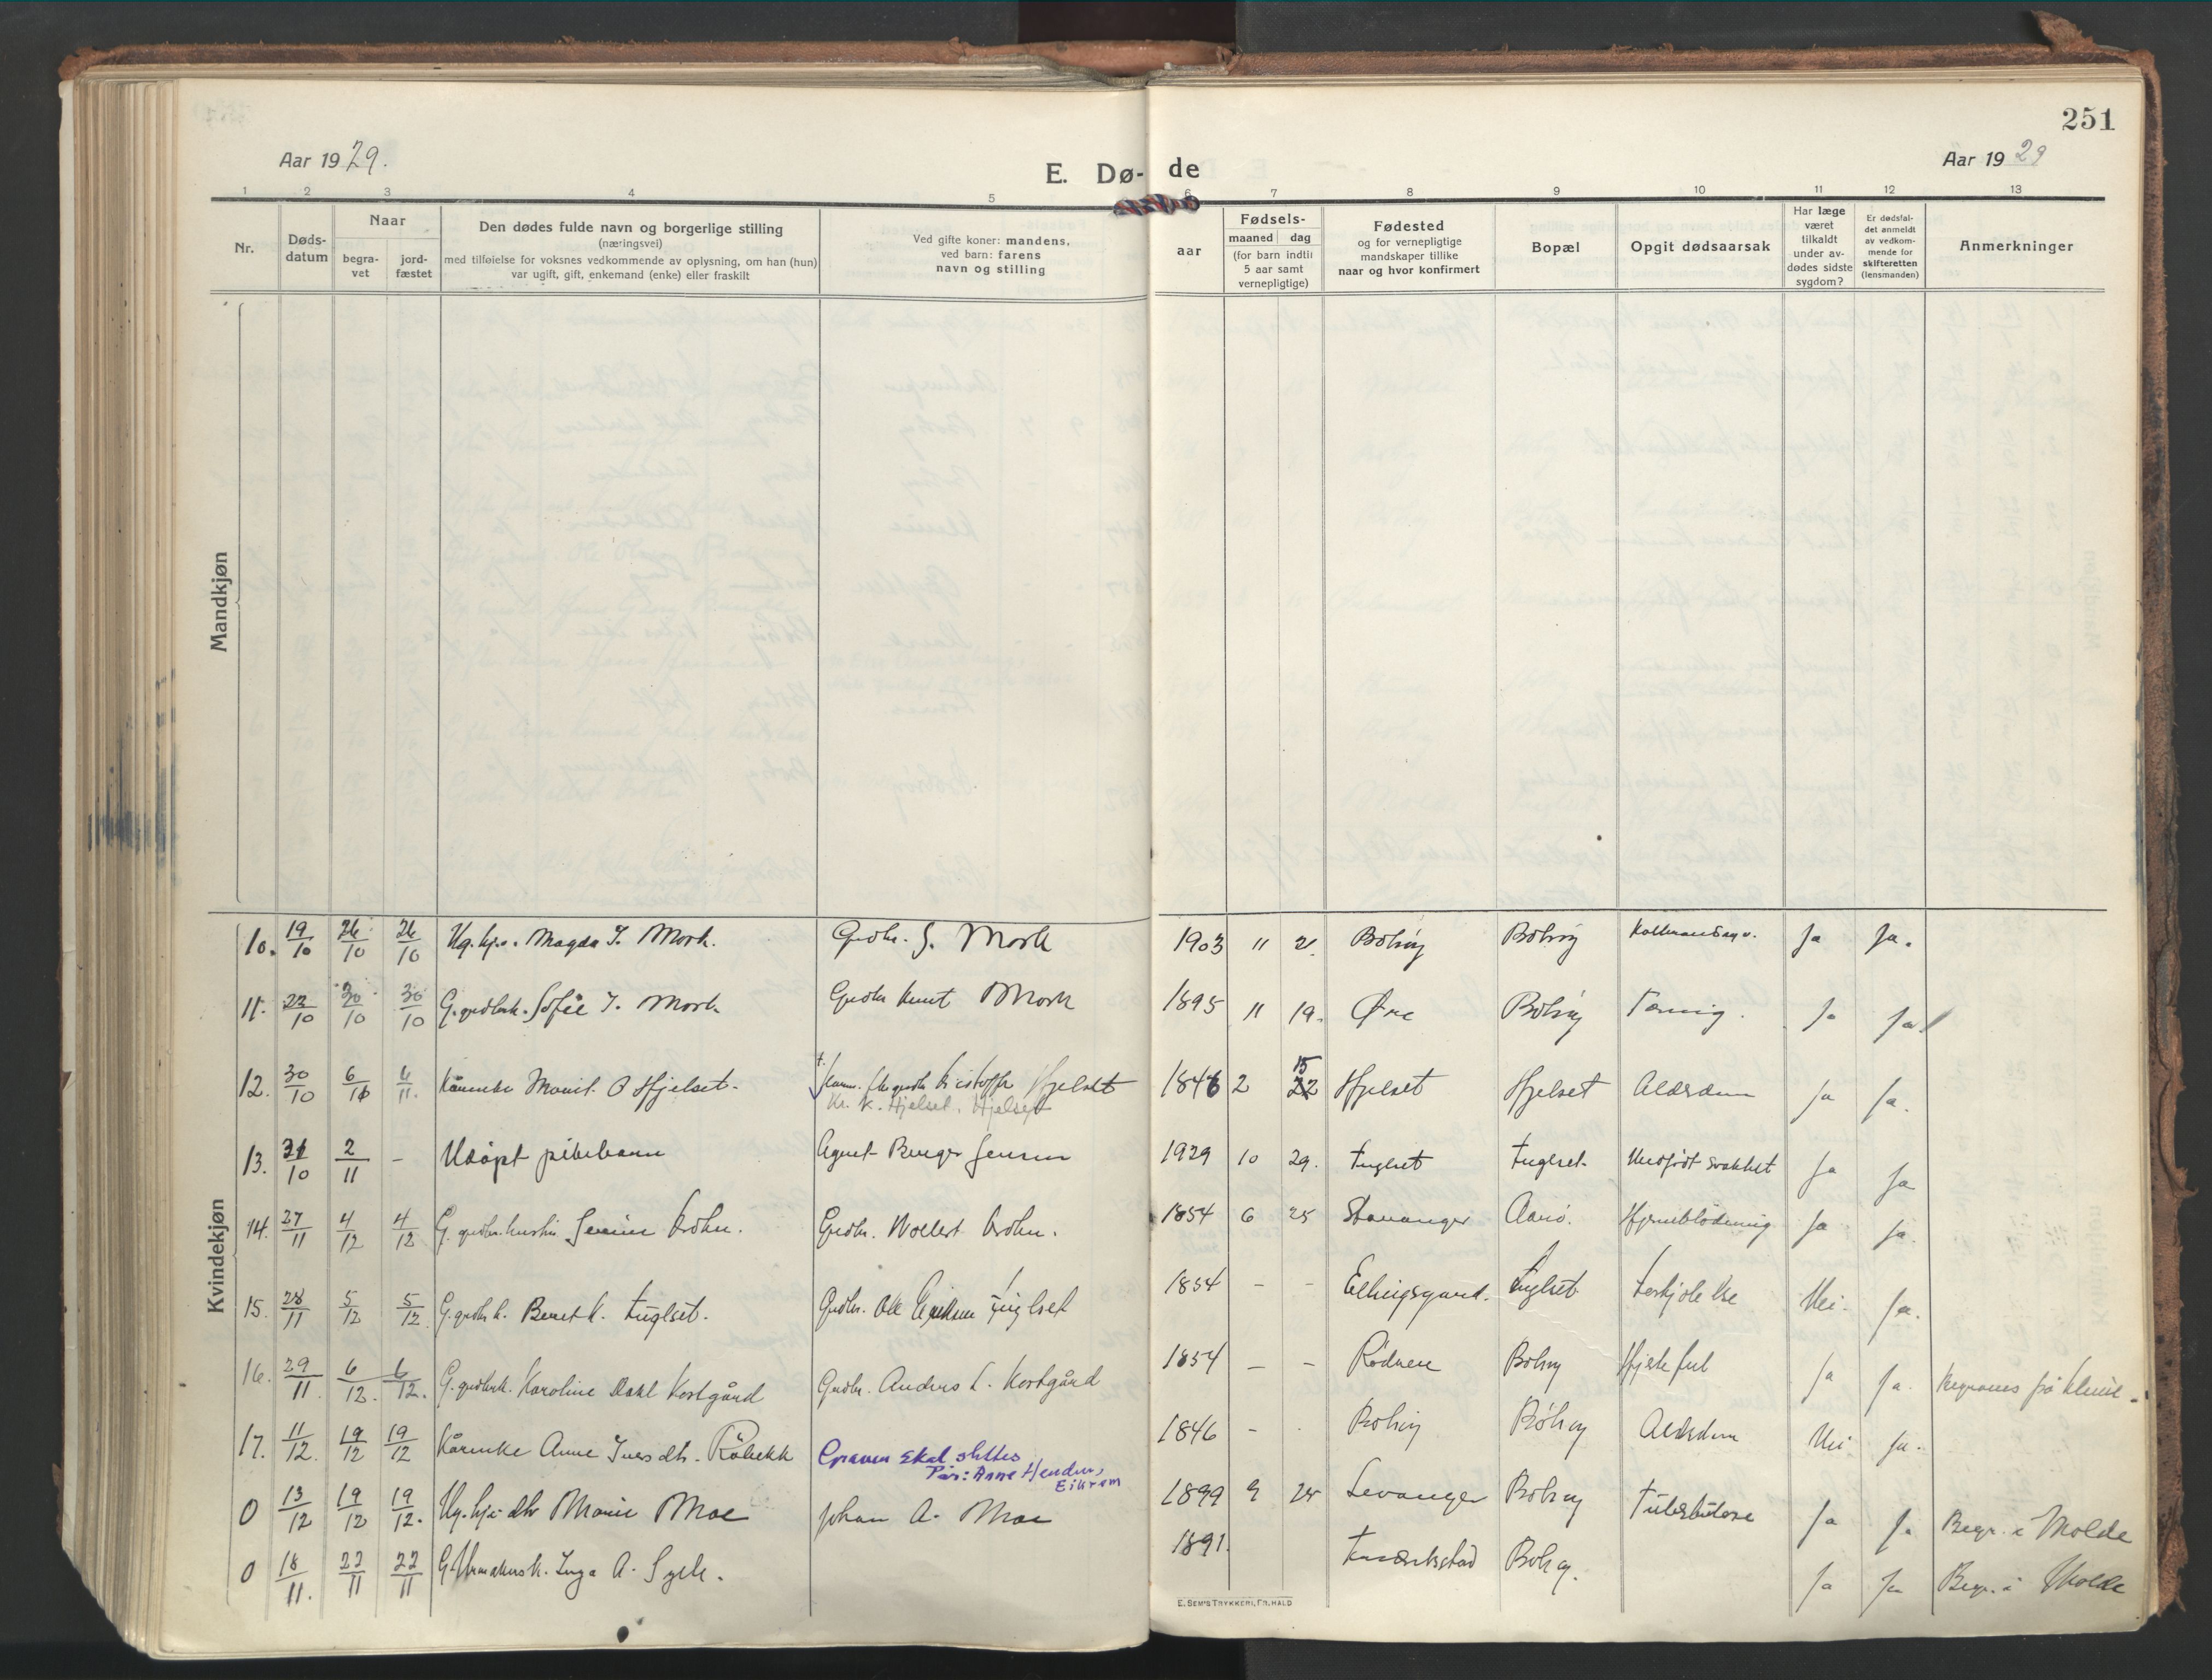 251
Aar 1929.
E. Dø- de
Aar 1929
1 2 3 4 5 6 7 8 9 10 11 12 13
Nr.
Døds-
datum
Naar
begra-
vet
jord-
fæstet
Den dødes fulde navn og borgerlige stilling
(næringsvei)
med tilføielse for voksnes vedkommende av oplysning, om han (hun)
var ugift, gift, enkemand (enke) eller fraskilt
Ved gifte koner: mandens,
ved barn: farens
navn og stilling
aar
Fødsels-
maaned dag
(for barn indtil
5 aar samt
vernepligtige)
Fødested
og for vernepligtige
mandskaper tillike
naar og hvor konfirmert
Bopæl
Opgit dødsaarsak
Har læge
været
tilkaldt
under av-
dødes sidste
sygdom?
Er dødsfal-
det anmeldt
av vedkom-
mende for
skifteretten
(lensmanden)
Anmerkninger
Mandkjøn
Kvindekjøn
10. 19/10 26/10 26/10 Ug. hj. Magda J. Mork. Grdbr. J. Mork 1903 11 21. Bolsøy Bolsøy Ja Ja.
11. 22/10 30/10 30/10 G. grdbrk. Sofie J. Mork. Grdbr Knut Mork 1895 11 19. Øre Bolsøy Tæring. Ja Ja
12. 30/10 6/11 6/11. Kårenke Marit O Hjelset. Kristoffer Hjelset 1846 2 15 22 Hjelset Hjelset Aldersdom Ja Ja.
Kr. K. Hjelset. Hjelset
13. 31/10 2/11 - Udøpt pikebarn Agnet Berger Jensen 1929 10 29. Fuglset Fuglset. Medfødt svakhet Ja Ja
14. 27/11 4/12 4/12 G. grdbr. hustru Severine Krohn. Grdbr. Wollert Krohn. 1854 6 25 Stavanger Aarø. Hjerneblødning Ja Ja.
15. 28/11 5/12 5/12. G. grdbr k. Beret K. Fuglset. Grdbr. Ole Eriksen Fuglset 1854 - - Ellingsgaard. Fuglset Forkjølelse Nei. Ja.
16. 29/11. 6/12. 6/12. G. grdbrk. Karoline Dahl Kortgård Grdbr. Anders L. Kortgård 1854 - - Rødven Bolsøy Hjertefeil Ja Ja. Begraves på Kleive.
17. 11/12. 19/12 19/12 Kårenke Anne Iversdtr. Røbekk 1846 - Bolsøy Bolsøy Aldersdom Nei Ja.
Graven skal slettes
Pår: Anne Hendén,
Eikrem
0 13/12 19/12 19/12. Ug. hj. dtr Marie Moe Johan A. Moe 1899 9 25 Levanger Bolsøy Tuberkulose Ja Ja Begr. i Molde
0 18/11. 22/11 22/11 G. Urmakersk. Inga A. Sylte. 1891. Bolsøy. Ja Ja Begr. i Molde
E. SEM'S TRYKKERI, FR. HALD